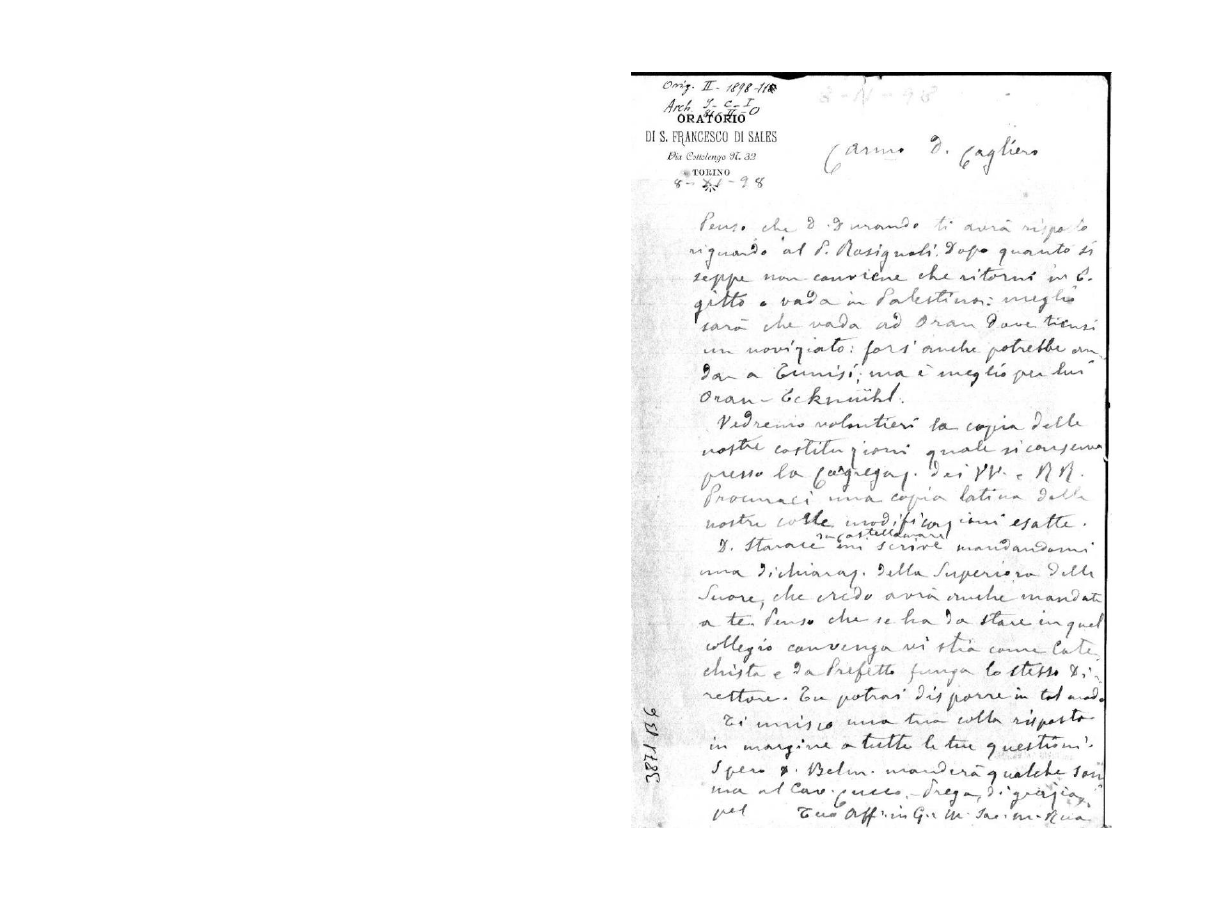 Orig. II - 1898-
Arch. S-C-I
8-XI-98
ORATORIO
DI S. FRANCESCO DI SALES
Via Cottolengo N. 32
TORINO
8-XI-98
Carmo D. Cagliero
Penso che D. Durando ti avrà risposto
riguardo al P. Rosignoli. Dopo quanto si
seppe non conviene che ritorni in E-
gitto o vada in Palestina: meglio
sarà che vada ad Oran dove tiensi
un noviziato: fors'anche potrebbe an-
dar a Tunisi; ma è meglio per lui
Oran-Eckmühl.
Vedremo volontieri la copia delle
nostre costituzioni quale si conserva
presso la Congregaz. dei VV. e RR.
Procuraci una copia latina delle
nostre colle modificazioni esatte.
D. da Castellamare mi scrive mandandomi
una dichiaraz. della Superiora delle
Suore, che credo avrà anche mandato
a te. Penso che se ha da stare in quel
collegio convenga vi stia come Cate-
chista e da Prefetto funga lo stesso Di-
rettore. Tu potrai disporre in tal modo.
Ti unisco una tua colla risposta
in margine a tutte le tue questioni.
Spero D. Belm. manderà qualche som
ma al Cav. Prega, di grazia,
pel Tuo Aff. in G. e M. Sac. M. Rua